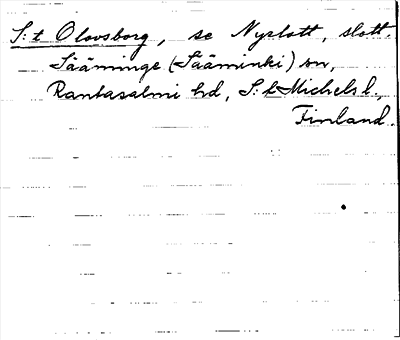 S:t Olovsborg, se Nyslott, slott.
Sääminge (Sääminki) sn,
Rantasalmi hd, S:t Michels l.,
Finland.